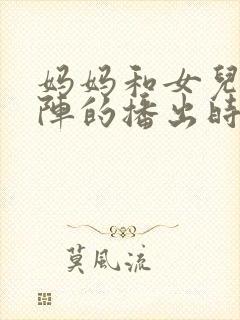 妈妈和女兒
陣的播出時
莫風流